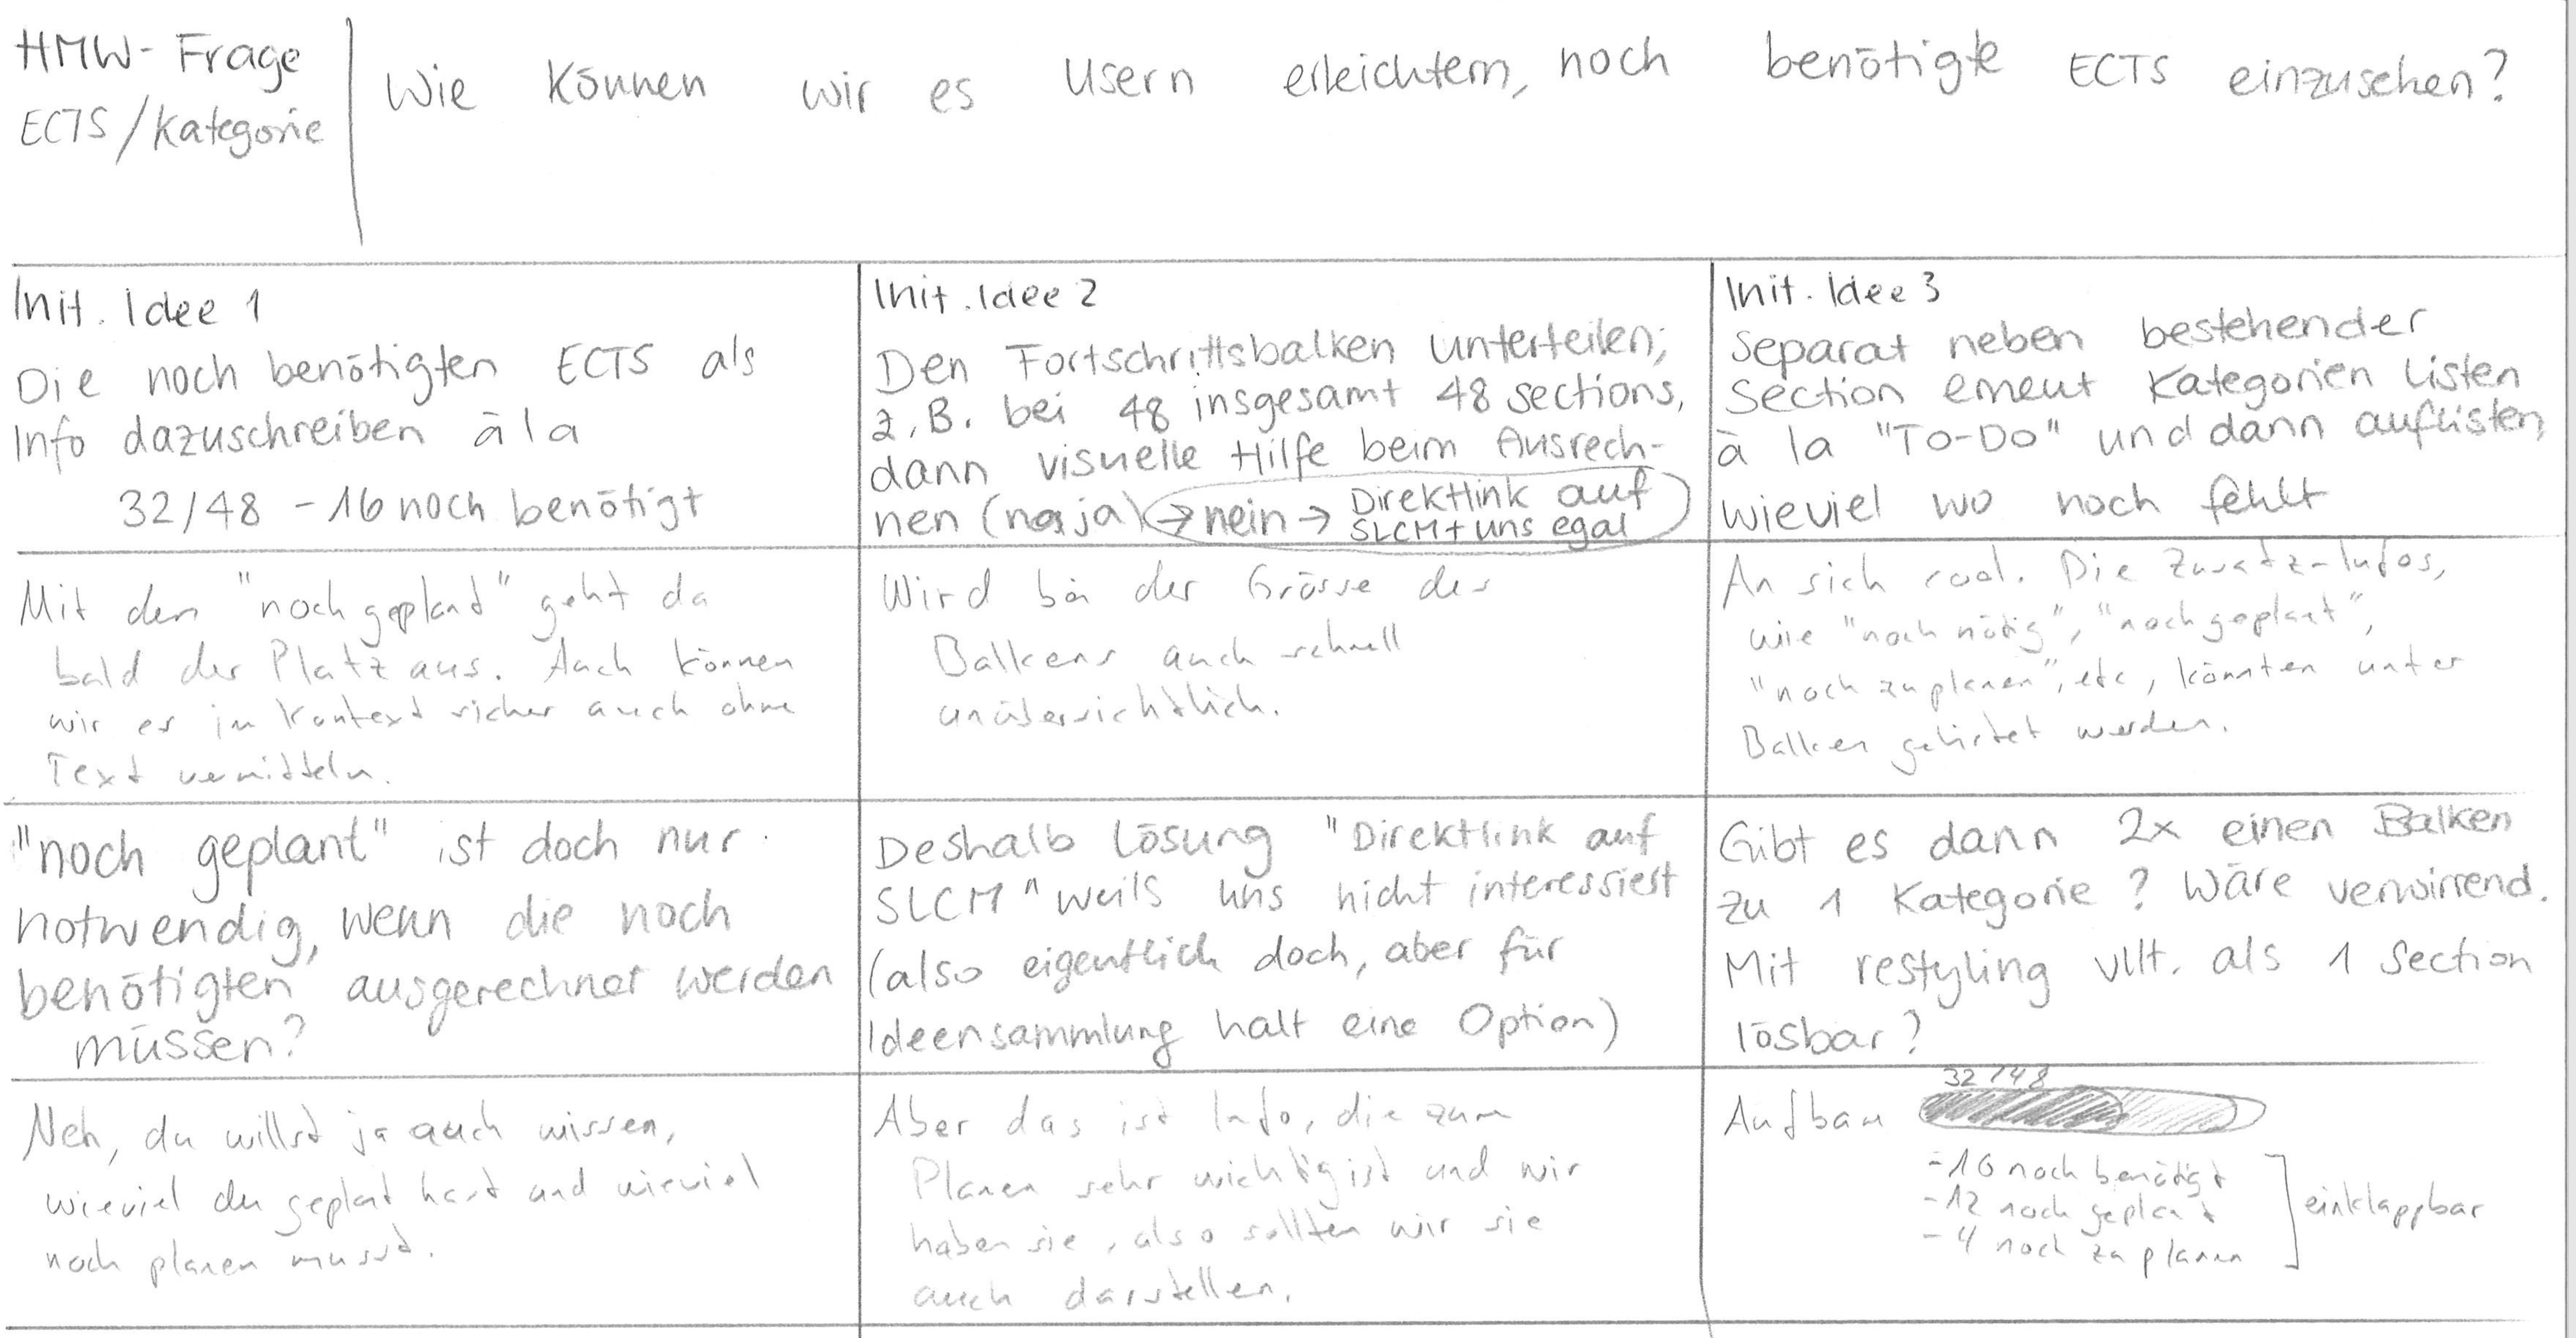 HMW-Frage
ECTS/Kategorie
Wie können wir es Usern erleichtern, noch benötigte ECTS einzusehen?
Init. Idee 1
Die noch benötigten ECTS als
Info dazuschreiben à la
32/48 - 16 noch benötigt
Init. Idee 2
Den Fortschrittsbalken unterteilen,
z.B. bei 48 insgesamt 48 sections,
dann visuelle Hilfe beim Ausrech-
nen (naja) → nein → Direktlink auf
SLCM + uns egal
Init. Idee 3
Separat neben bestehender
Section erneut Kategorien listen
à la "TO-DO" und dann auflisten,
wieviel wo noch fehlt
Mit den "noch geplant" geht da
bald der Platz aus. Auch können
wir es im Kontext sicher auch ohne
Text vermitteln.
Wird bei der Grösse des
Balkens auch schnell
unübersichtlich.
An sich cool. Die Zusatz-Infos,
wie "noch nötig", "noch geplant",
"noch zu planen", etc, könnten unter
Balken gelistet werden.
"noch geplant" ist doch nur
notwendig, wenn die noch
benötigten ausgerechnet werden
müssen?
Deshalb Lösung "Direktlink auf
SLCM" weils uns nicht interessiert
(also eigentlich doch, aber für
Ideensammlung halt eine Option)
Gibt es dann 2x einen Balken
zu 1 Kategorie? Wäre verwirrend.
Mit restyling vllt. als 1 Section
lösbar?
Neh, du willst ja auch wissen,
wieviel du geplant hast und wieviel
noch planen musst.
Aber das ist Info, die zum
Planen sehr wichtig ist und wir
haben sie, also sollten wir sie
auch darstellen.
32/48
Aufbau
-16 noch benötigt
-12 noch geplant
-4 noch zu planen
einklappbar